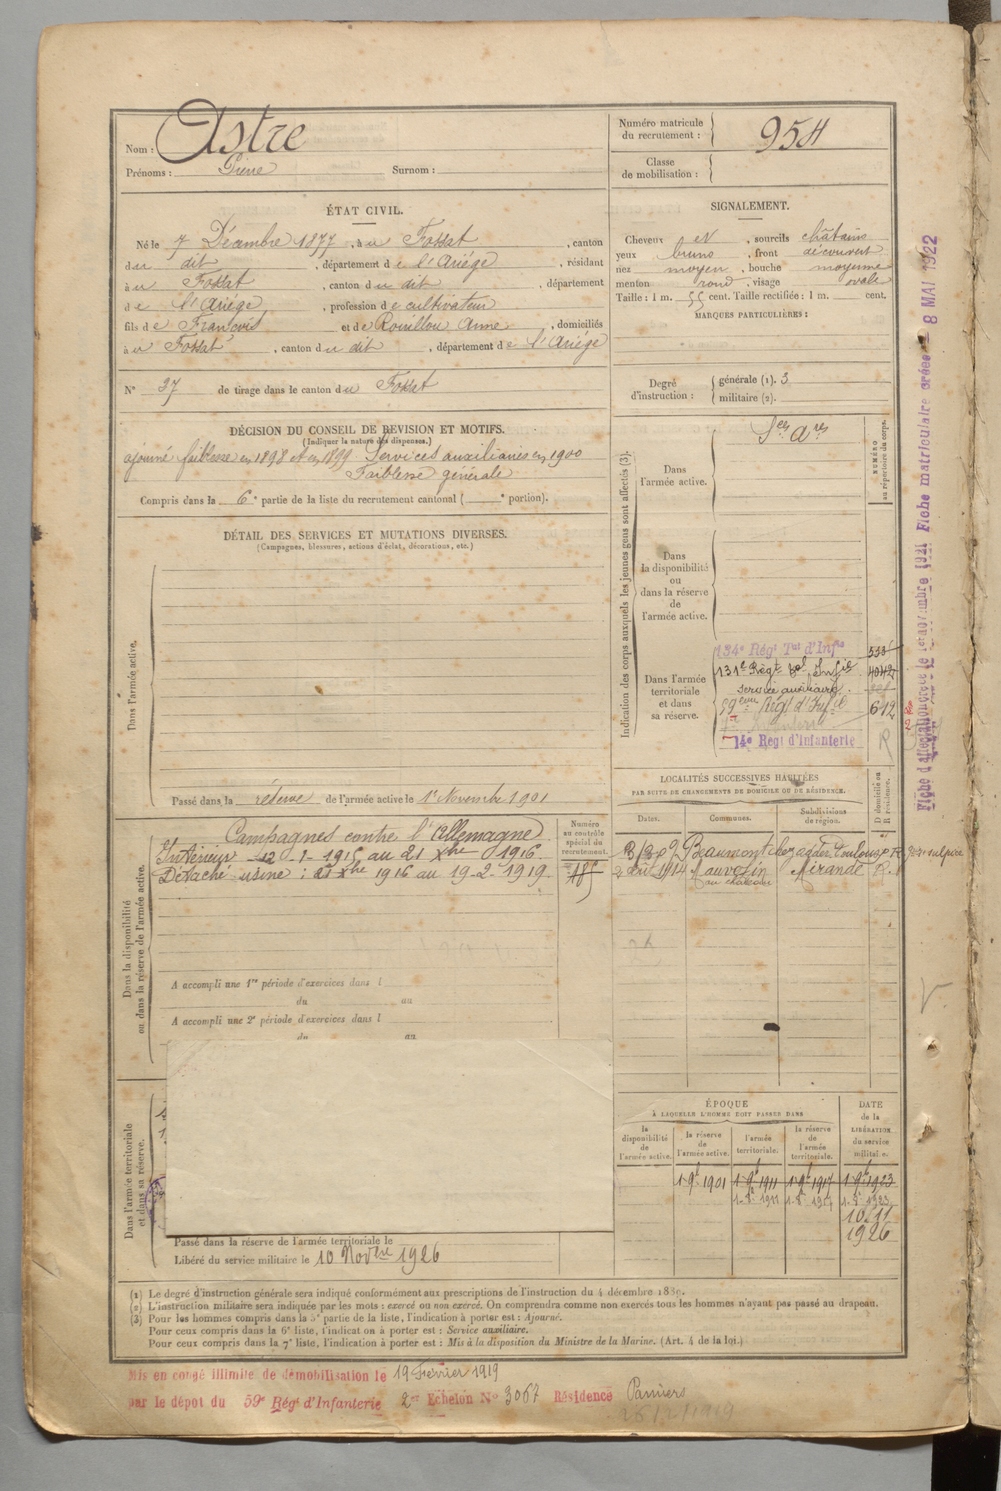 Nom : Astre
Prénoms : Pierre Surnom :
Numéro matricule du recrutement : 954
Classe de mobilisation :
ÉTAT CIVIL.
Né le 7 Décembre 1877, à u Fossat, canton
du dit, département de l'Ariège, résidant
à u Fossat, canton du dit, département
de l'Ariège, profession de cultivateur
fils de François et de Rouillou Anne, domiciliés
à u Fossat, canton du dit, département de l'Ariège
N° 37 de tirage dans le canton du Fossat
SIGNALEMENT.
Cheveux et, sourcils châtains
yeux bruns, front découvert
nez moyen, bouche moyenne
menton rond, visage ovale
Taille : 1 m. 55 cent. Taille rectifiée : 1 m. cent.
MARQUES PARTICULIÈRES :
Degré d'instruction : générale (1). 3
militaire (2).
DÉCISION DU CONSEIL DE REVISION ET MOTIFS.
(Indiquer la nature des dispenses.)
ajourné faiblesse en 1898 et en 1899 Services auxiliaires en 1900
Faiblesse générale
Compris dans la 6e partie de la liste du recrutement cantonal ( e portion).
DÉTAIL DES SERVICES ET MUTATIONS DIVERSES.
(Campagnes, blessures, actions d'éclat, décorations, etc.)
Dans l'armée active.
Passé dans la réserve de l'armée active le 1er Novembre 1901
Indication des corps auxquels les jeunes gens sont affectés (3).
NUMÉRO au répertoire du corps.
Ses Ares
Dans l'armée active.
Dans la disponibilité ou dans la réserve de l'armée active.
Dans l'armée territoriale et dans sa réserve.
134e Régt Tal d'Infie 533
131e Régt Tal Infie 4042
service auxiliaire.
59eme Régt d'Infie 612
14e Regt d'Infanterie R
LOCALITÉS SUCCESSIVES HABITÉES
PAR SUITE DE CHANGEMENTS DE DOMICILE OU DE RÉSIDENCE.
Dates. Communes. Subdivisions de région. D domicile ou R résidence.
Beaumont Toulouse R
2 août 1914 Mauvezin Mirande R.
Dans la disponibilité ou dans la réserve de l'armée active.
Numéro au contrôle spécial du recrutement.
Campagnes contre l'Allemagne
Intérieur 12-1-1915 au 21 Xbre 1916
Détaché usine : 22 Xbre 1916 au 19-2-1919
485
A accompli une 1re période d'exercices dans l
du au
A accompli une 2e période d'exercices dans l
du au
Dans l'armée territoriale et dans sa réserve.
Passé dans la réserve de l'armée territoriale le
Libéré du service militaire le 10 Novbre 1926
ÉPOQUE
À LAQUELLE L'HOMME DOIT PASSER DANS
la disponibilité de l'armée active. la réserve de l'armée active. l'armée territoriale. la réserve de l'armée territoriale. DATE de la LIBÉRATION du service militaire.
1-9bre 1901 1-9bre 1911 1-9bre 1917 1-9bre 1923
10. 11
1926
(1) Le degré d'instruction générale sera indiqué conformément aux prescriptions de l'instruction du 4 décembre 1889.
(2) L'instruction militaire sera indiquée par les mots : exercé ou non exercé. On comprendra comme non exercés tous les hommes n'ayant pas passé au drapeau.
(3) Pour les hommes compris dans la 5e partie de la liste, l'indication à porter est : Ajourné.
Pour ceux compris dans la 6e liste, l'indication à porter est : Service auxiliaire.
Pour ceux compris dans la 7e liste, l'indication à porter est : Mis à la disposition du Ministre de la Marine. (Art. 4 de la loi.)
Mis en congé illimité de démobilisation le 19 Février 1919
par le dépot du 59e Régt d'Infanterie 2me Echelon N° 3067 Résidence Pamiers
26/2/1919
Fiche matriculaire créée — 8 MAI 1922